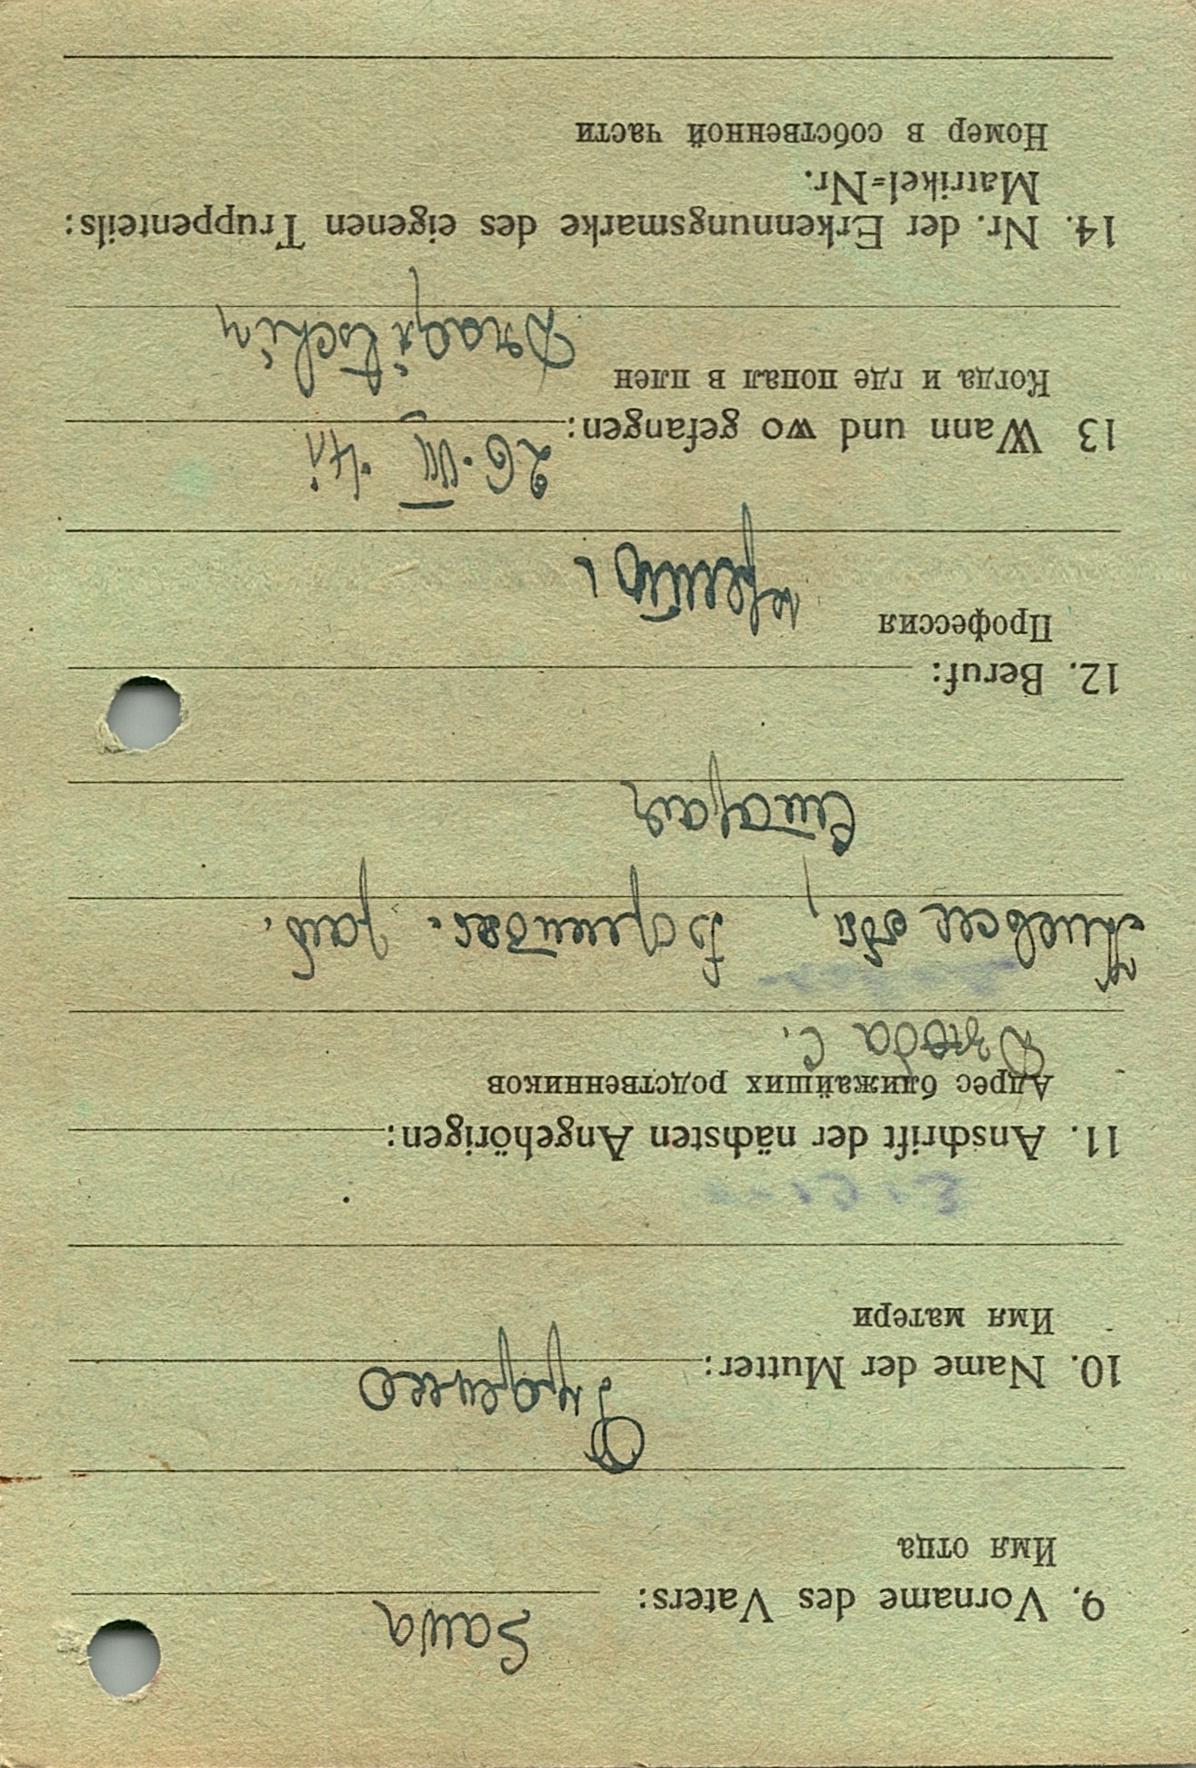 9. Vorname des Vaters: Sawa
Имя отца
10. Name der Mutter:
Имя матери
11. Anschrift der nächsten Angehörigen:
Адрес ближайших родственников
Дзюба С.
Киевск обл,
12. Beruf:
Профессия
13 Wann und wo gefangen: 26. VII. 41
Когда и где попал в плен
14. Nr. der Erkennungsmarke des eigenen Truppenteils:
Matrikel=Nr.
Номер в собственной части